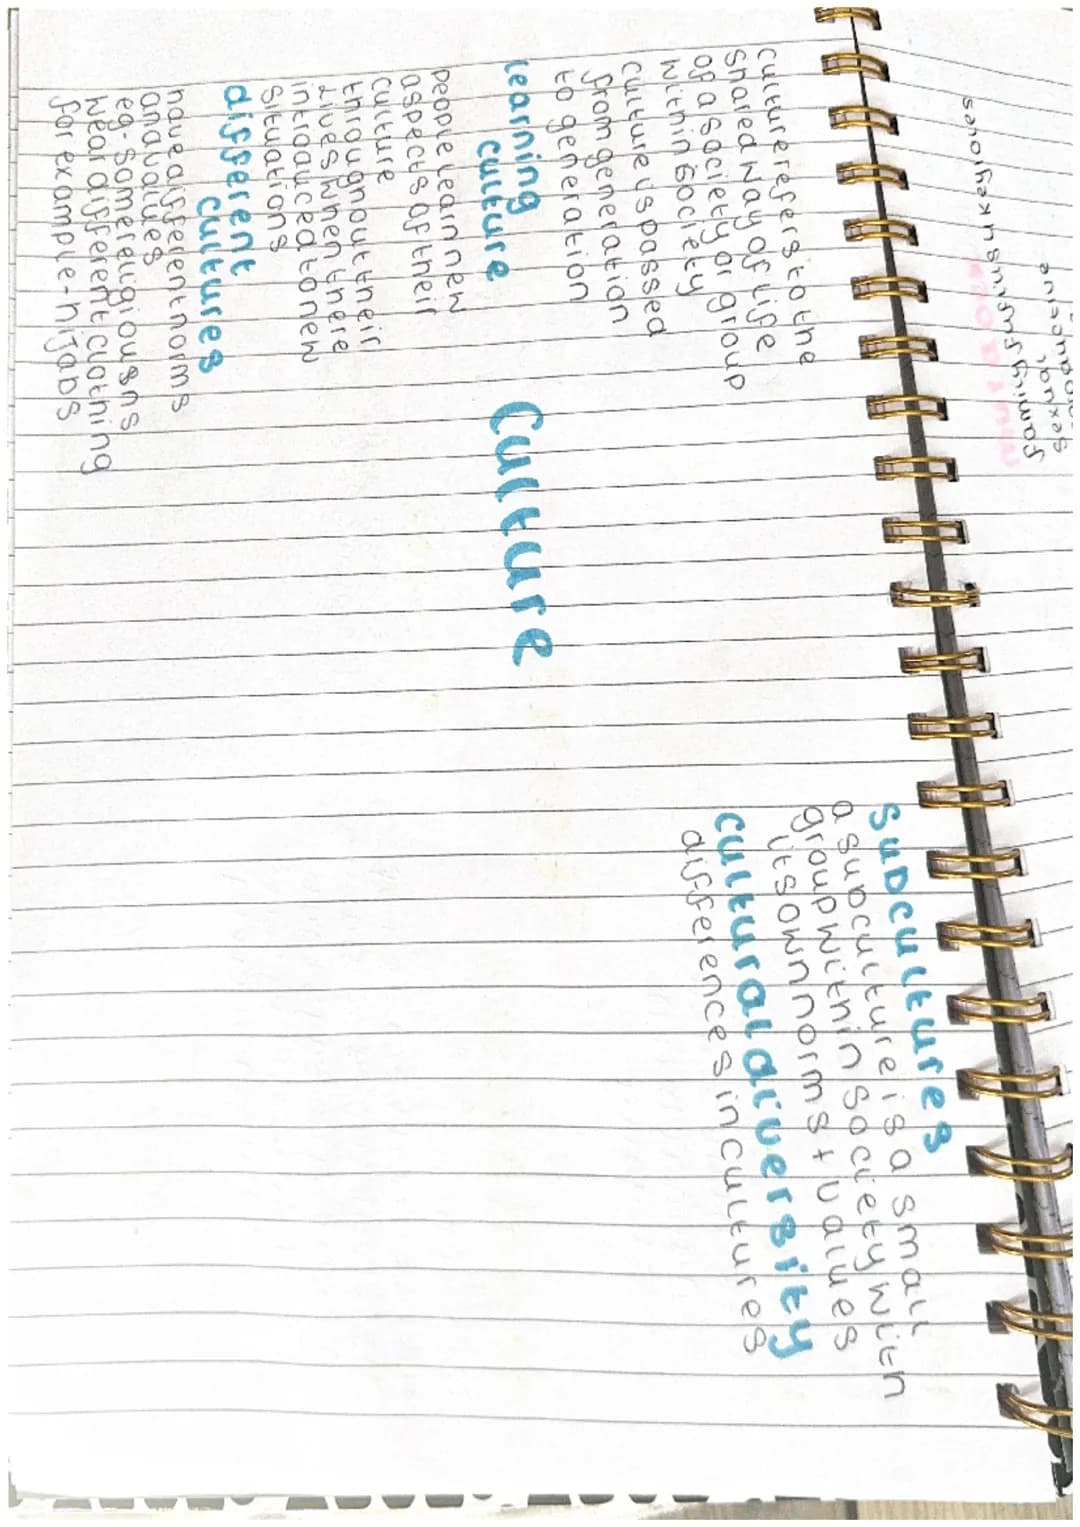 culture refers to the
shared way of life
of a society or group
within society
culture is passed
from generation
to generation
learning
culture
people learn new
aspects of their
culture
throughout their
lives when there
introduced to new
situations
different
cultures
have different norms
and values
eg-some religiousns
wear different clothing
for example-hijabs
Culture
subcultures
a subculture is a small
group within society with
its own norms + values
cultural diversity
differences in cultures
family fulfils 4 key roles
sexual